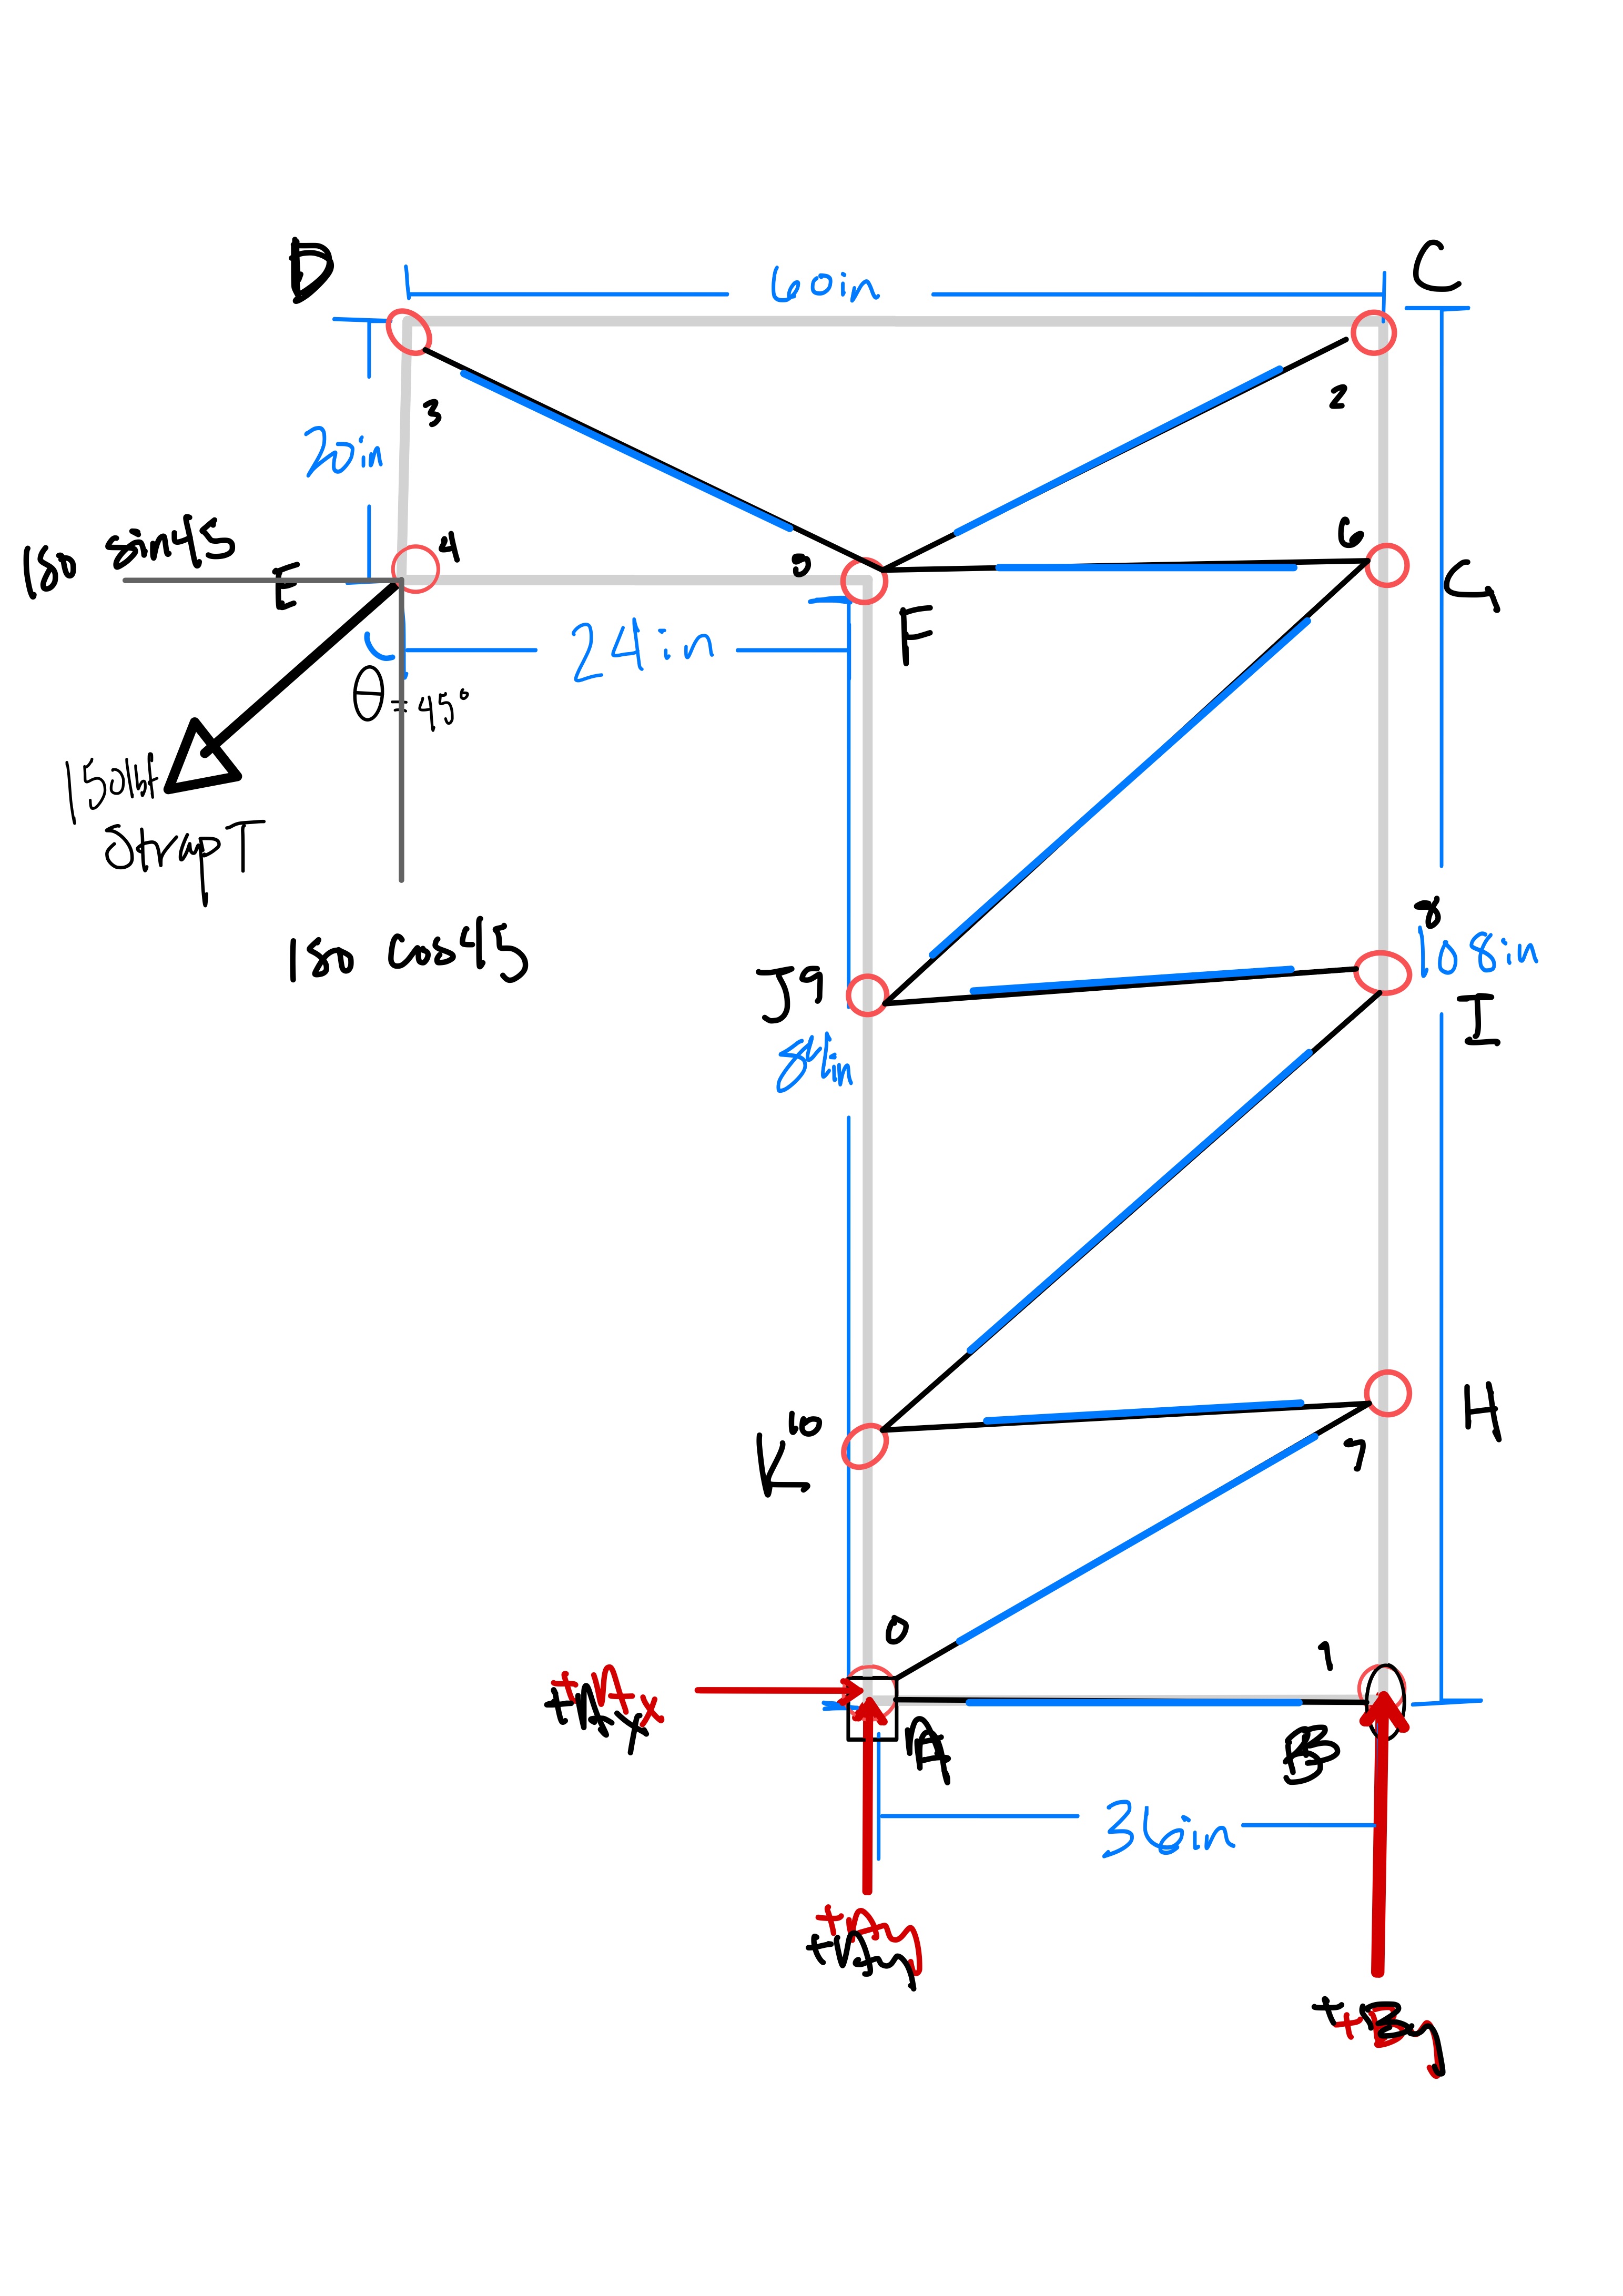 D
60in
C
3
2
20in
150 sin45
E
4
5
6
G
F
24in
θ=45°
150lbf
Strap T
150 cos45
8
108in
J 9
I
84in
K 10
H
7
0
1
+Ax
A
B
36in
+Ay
+By